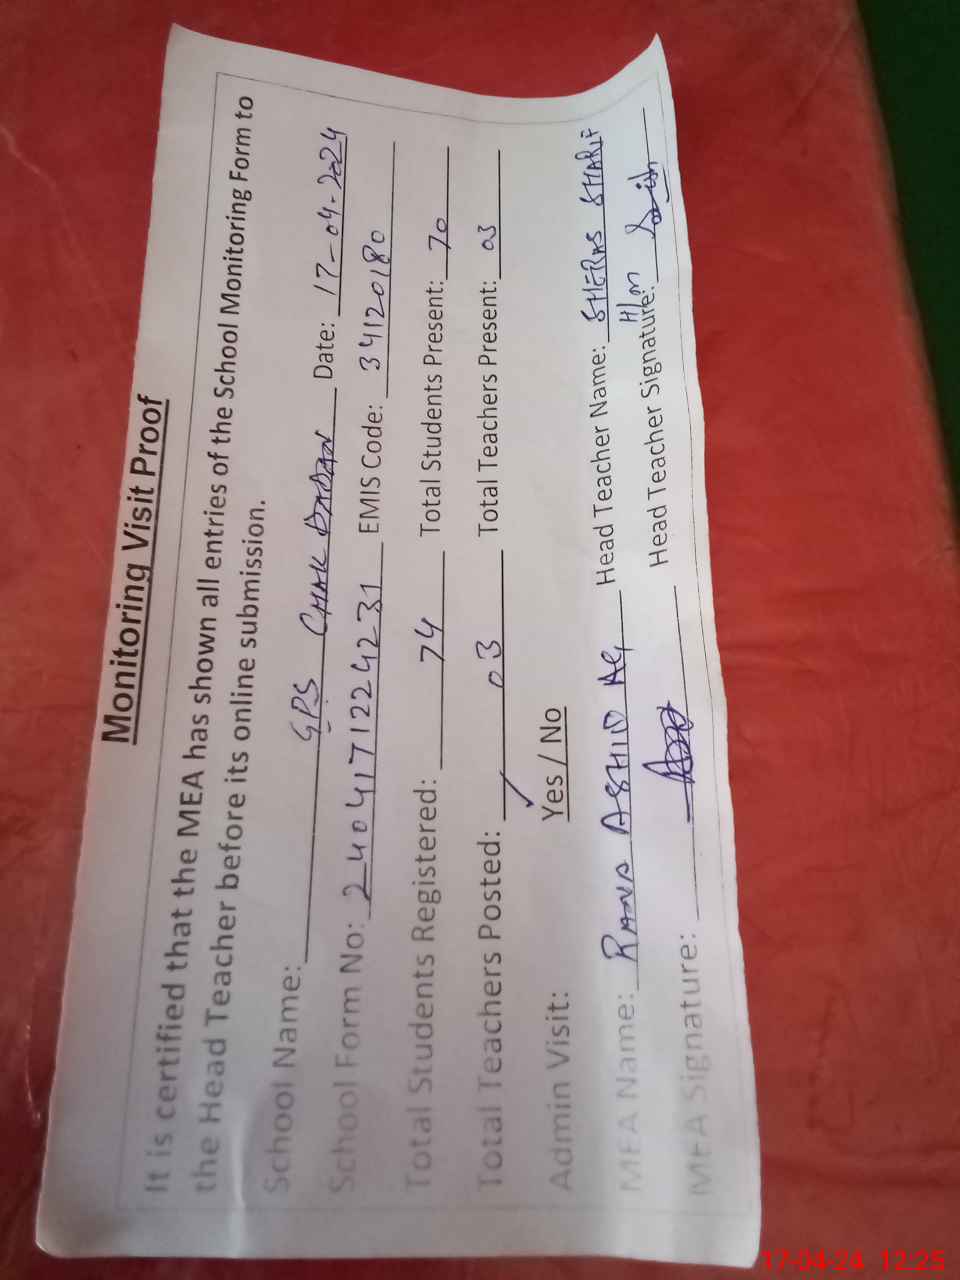 Monitoring Visit Proof
It is certified that the MEA has shown all entries of the School Monitoring Form to
the Head Teacher before its online submission.
School Name: GPS CHAK Date: 17-04-2024
School Form No: 2404171224231 EMIS Code: 34120180
Total Students Registered: 74 Total Students Present: 70
Total Teachers Posted: 03 Total Teachers Present: 03
Admin Visit: Yes / No
MEA Name: RANA Head Teacher Name: SHARIF
MEA Signature: Head Teacher Signature:
17-04-24 12:25